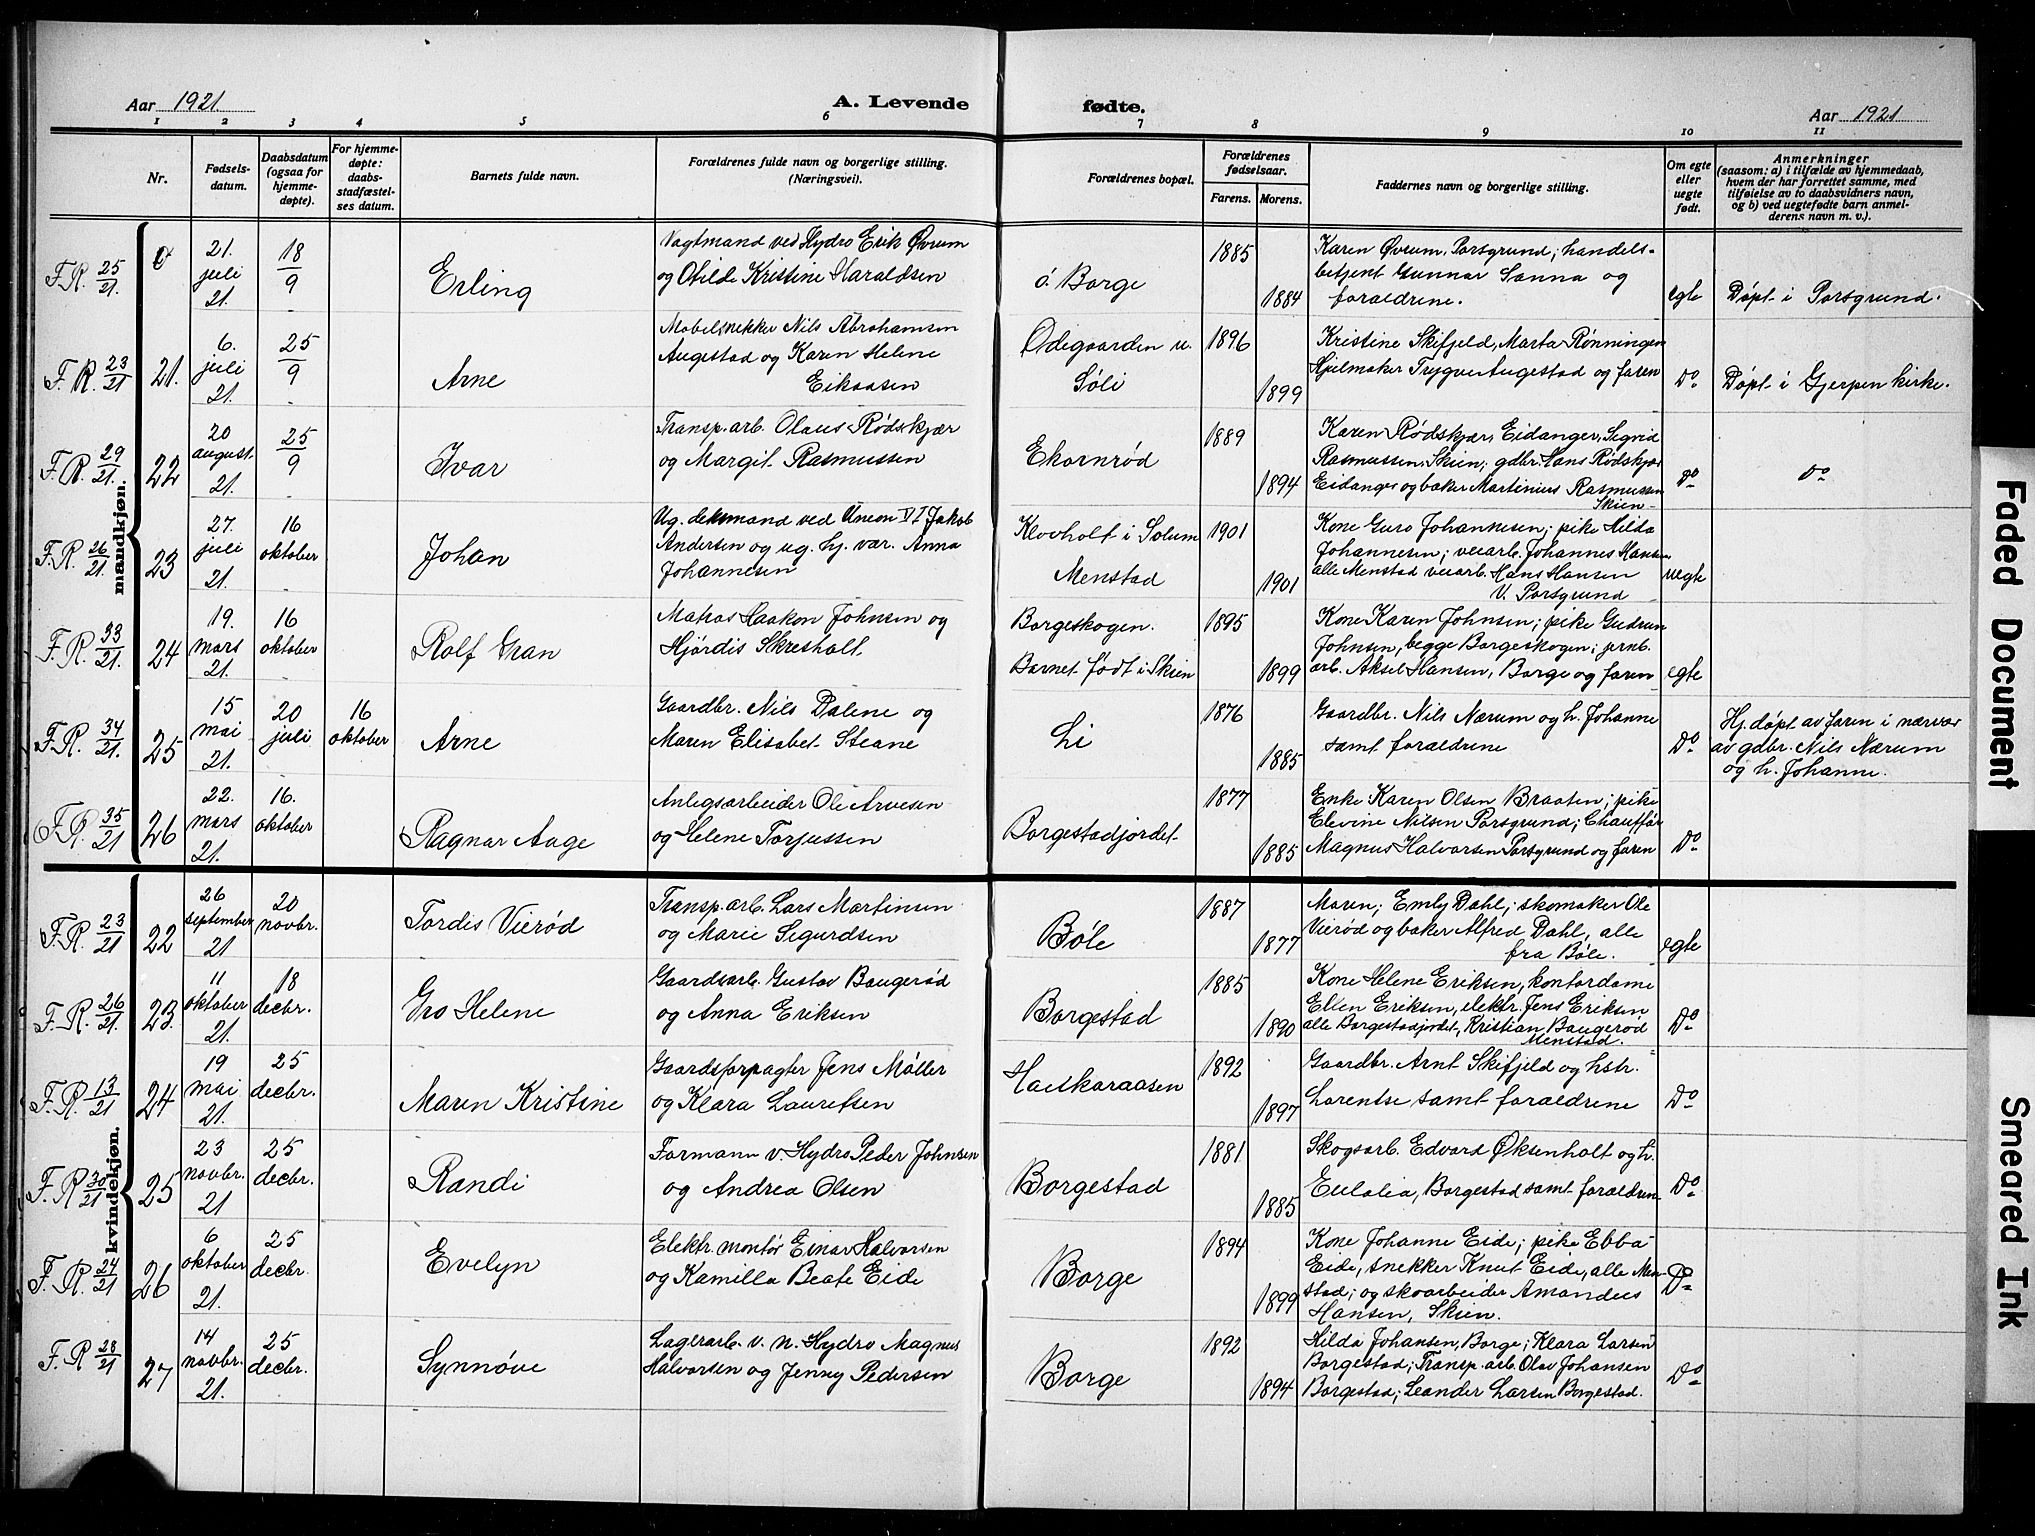 Aar 1921.
A. Levende fødte.
Aar 1921
1 2 3 4 5 6 7 8 9 10 11
Nr.
Fødsels-
datum.
Daabsdatum
(ogsaa for
hjemme-
døpte).
For hjemme-
døpte:
daabs-
stadfæstel-
ses datum.
Barnets fulde navn.
Forældrenes fulde navn og borgerlige stilling.
(Næringsvei).
Forældrenes bopæl.
Forældrenes
fødselsaar.
Farens. Morens.
Faddernes navn og borgerlige stilling.
Om egte
eller
uegte
født.
Anmerkninger
(saasom: a) i tilfælde av hjemmedaab,
hvem der har forrettet samme, med
tilføielse av to daabsvidners navn,
og b) ved uegtefødte barn anmel-
derens navn m. v.).
mandkjøn.
F.R. 25/21.
21.
juli
21.
18/9
Erling
Vagtmand ved Hydro Erik Øvrum
og Otilde Kristine Haraldsen
ö. Borge
1885
1884
Karen Øvrum, Porsgrund; handels-
betjent Gunnar Sanna og
forældrene.
egte
Døpt i Porsgrund.
F.R. 23/21
21.
6.
juli
21.
25/9
Arne
Møbelsnekker Nils Abrahamsen
Augestad og Karen Helene
Eikaasen
Ødegaarden u.
Søli
1896
1899
Kristine Skifjeld, Marta Rønningen
Hjulmaker Trygve Augestad og faren
Do
Døpt i Gjerpen kirke.
F.R. 29/21.
22
20
august
21.
25/9
Ivar
Transp. arb. Olaus Rødskjær
og Margit Rasmussen
Ekornrød
1889
1894
Karen Rødskjær, Eidanger, Sigvid
Rasmussen, Skien; gdbr. Hans Rødskjær
Eidanger og baker Martinius Rasmussen
Skien
Do
Do
F.R. 26/21.
23
27.
juli
21.
16
oktober
Johan
Ug. dekksmand ved Union VI Jakob
Andersen og ug. hj. vær. Anna
Johannesen
Klovholt i Solum
Menstad
1901
1901
Kone Guro Johannesen; pike Hilda
Johannesen; veiarb. Johannes Hansen
alle Menstad veiarb. Hans Hansen
V. Porsgrund
uegte
F.R. 33/21.
24
19.
mars
21.
16
oktober
Rolf Gran
Matros Haakon Johnsen og
Hjørdis Skresholt.
Borgeskogen.
Barnet født i Skien
1895
1899
Kone Karen Johnsen; pike Gudrun
Johnsen, begge Borgeskogen; jernb.
arb. Aksel Hansen, Borge og faren
egte
F.R. 34/21.
25
15
mai
21.
20
juli
16
oktober
Arne
Gaardbr. Nils Dalene og
Maren Elisabet Steane
Li
1876
1885
Gaardbr. Nils Nærum og h. Johanne
samt forældrene
Do
Hj. døpt av faren i nærvær
av gdbr. Nils Nærum
og h. Johanne.
F.R. 35/21
26
22.
mars
21.
16.
oktober
Ragnar Aage
Anlegsarbeider Ole Arvesen
og Helene Torjussen
Borgestadjordet
1877
1885
Enke Karen Olsen Braaten; pike
Elevine Nilsen Porsgrund; Chauffør
Magnus Halvorsen Porsgrund og faren
Do
kvindekjøn.
F.R. 23/21
22
26
september
21
20
novbr.
Tordis Vierød
Transp. arb. Lars Martinsen
og Marie Sigurdsen
Bøle
1887
1877
Maren; Emly Dahl; skomaker Ole
Vierød og baker Alfred Dahl, alle
fra Bøle.
egte
F.R. 26/21.
23.
11
oktober
21.
18
decbr.
Gro Helene
Gaardsarb. Gustav Baugerød
og Anna Eriksen
Borgestad
1885
1890
Kone Helene Eriksen, kontordame
Ellen Eriksen, elektr. Jens Eriksen
alle Borgestadjordet, Kristian Baugerød
Menstad.
Do
F.R. 13/21
24
19
mai
21.
25
decbr.
Maren Kristine
Gaardsforpagter Jens Møller
og Klara Lauretsen
Haukaraasen
1892
1897
Gaardbr. Arnt Skifjeld og hstr.
Larentse samt forældrene
Do
F.R. 30/21
25
23
novbr.
21
25
decbr.
Randi
Formann v. Hydro Peder Johnsen
og Andrea Olsen
Borgestad
1881
1885
Skogsarb. Edvard Øksenholt og h.
Eulalia, Borgestad samt forældren
Do
F.R. 24/21
26
6
oktober
21.
25
decbr.
Evelyn
Elektr. montør Einar Halvorsen
og Kamilla Beate Eide
Borge
1894
1899
Kone Johanne Eide; pike Ebba
Eide, snekker Knut Eide, alle Men-
stad; og skoarbeider Amandus
Hansen, Skien.
Do
F.R 28/21
27
14
novbr.
21.
25
decbr.
Synnøve
Lagerarb. v. N. Hydro Magnus
Halvorsen og Jenny Pedersen
Borge
1892
1894
Hilda Johansen, Borge; Klara Larsen
Borgestad; Transp. arb. Olav Johansen
Borgestad; Leander Larsen Borgestad.
Do
Faded Document
Smeared Ink